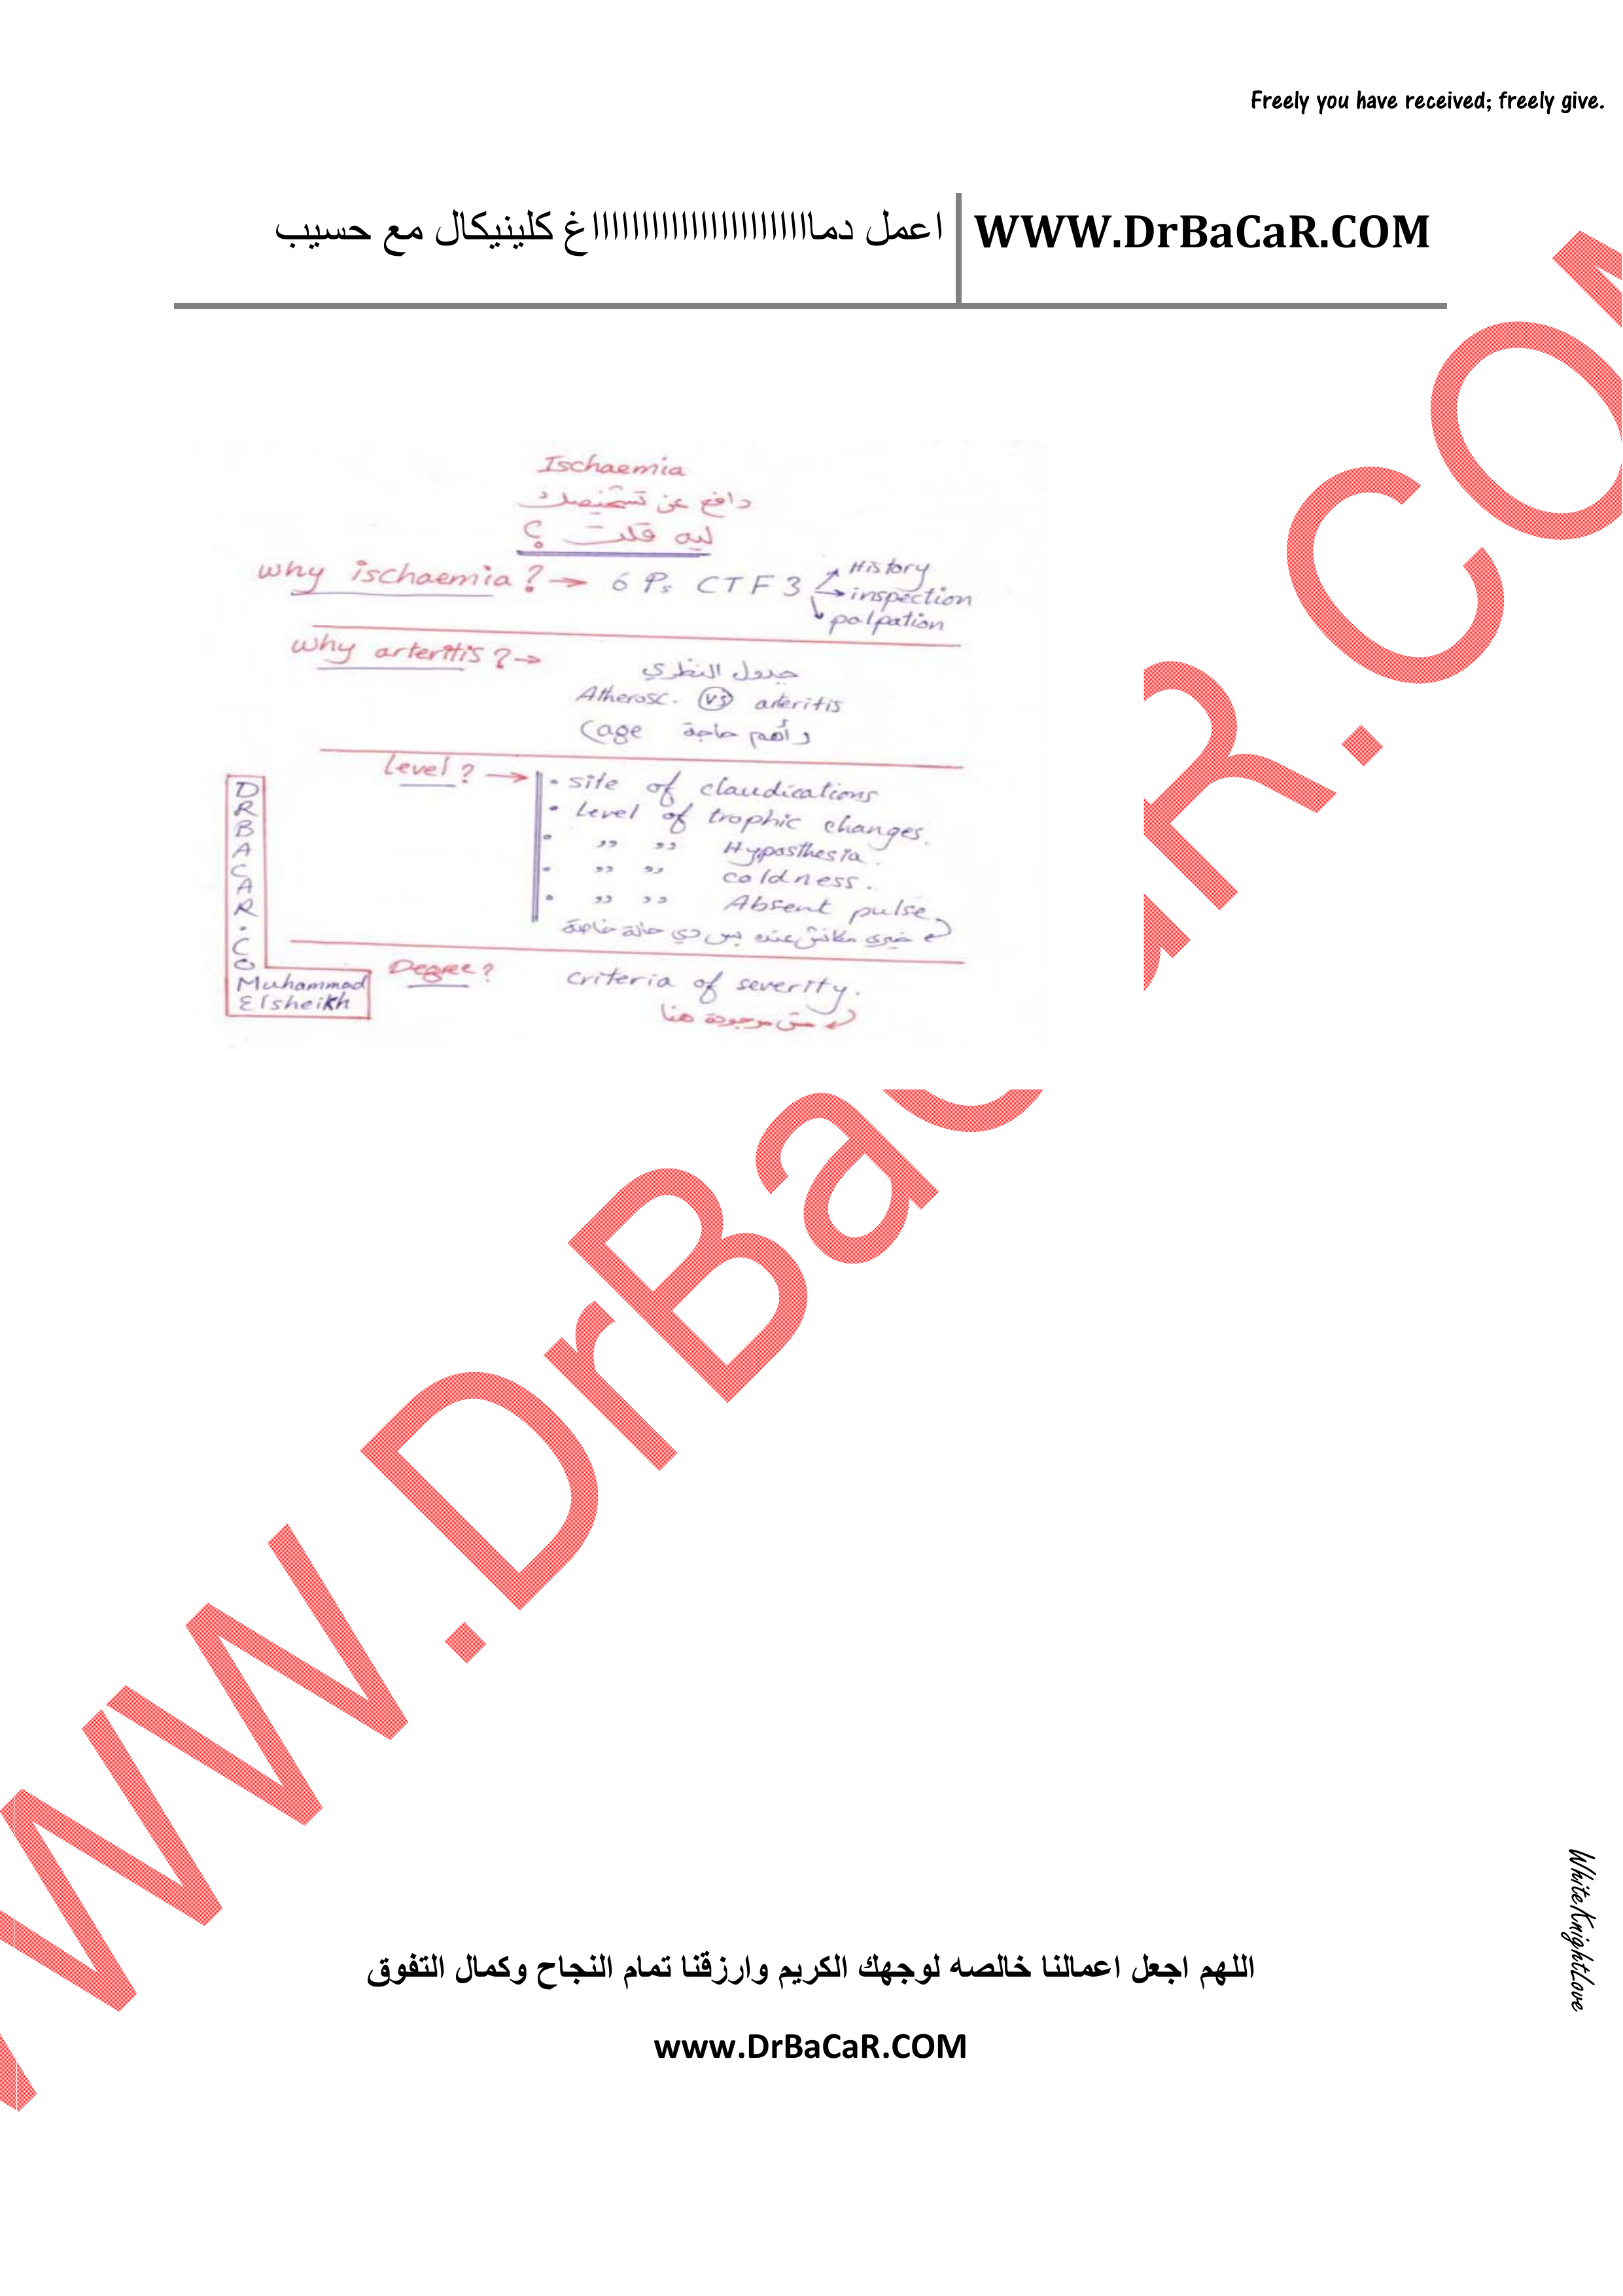 Freely you have received; freely give.
اعمل دمااااااااااااااااااااااغ كلينيكال مع حسيب
WWW.DrBaCaR.COM
Ischaemia
دافع عن تشخيصك
ليه قلت ؟
why ischaemia? → 6 Ps CTF 3
History
inspection
palpation
why arteritis? →
جدول النظري
Atherosc. vs arteritis
(age وأهم حاجة
Level? →
• site of claudications
• Level of trophic changes.
• ,, ,, Hyposthesia.
• ,, ,, coldness.
• ,, ,, Absent pulse
خيري مكانش عنده بس دي حالة خاصة
Degree? criteria of severity.
مش موجودة هنا
DRBACAR.CO
Muhammad
Elsheikh
www.DrBaCaR.COM
WhiteKnightLove
اللهم اجعل اعمالنا خالصه لوجهك الكريم وارزقنا تمام النجاح وكمال التفوق
www.DrBaCaR.COM